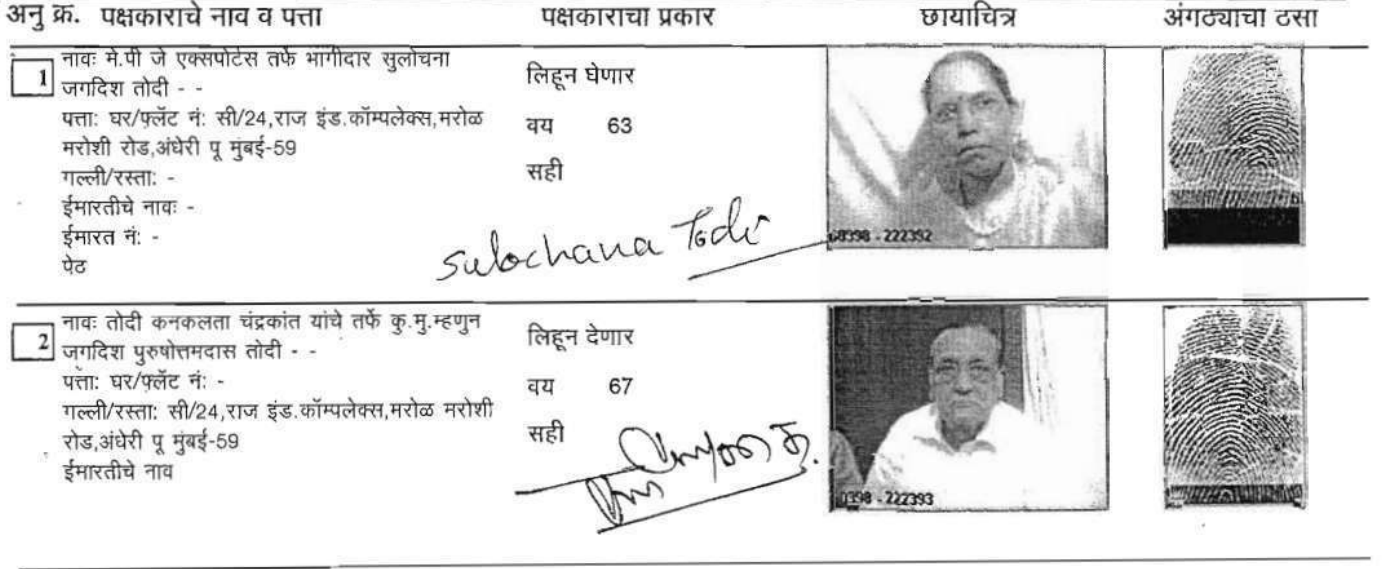 अनु क्र. पक्षकाराचे नाव व पत्ता पक्षकाराचा प्रकार छायाचित्र अंगठ्याचा ठसा
1 नावः मे.पी जे एक्सपोर्टस तर्फे भागीदार सुलोचना
जगदिश तोदी - -
पत्ताः घर/फ्लॅट नं: सी/24,राज इंड.कॉम्पलेक्स,मरोळ
मरोशी रोड,अंधेरी पू मुंबई-59
गल्ली/रस्ताः -
ईमारतीचे नावः -
ईमारत नं: -
पेठ
लिहून घेणार
वय 63
सही
Sulochana Todi
222392
2 नावः तोदी कनकलता चंद्रकांत यांचे तर्फे कु.मु.म्हणुन
जगदिश पुरुषोत्तमदास तोदी - -
पत्ताः घर/फ्लॅट नं: -
गल्ली/रस्ताः सी/24,राज इंड.कॉम्पलेक्स,मरोळ मरोशी
रोड,अंधेरी पू मुंबई-59
ईमारतीचे नाव
लिहून देणार
वय 67
सही
222393